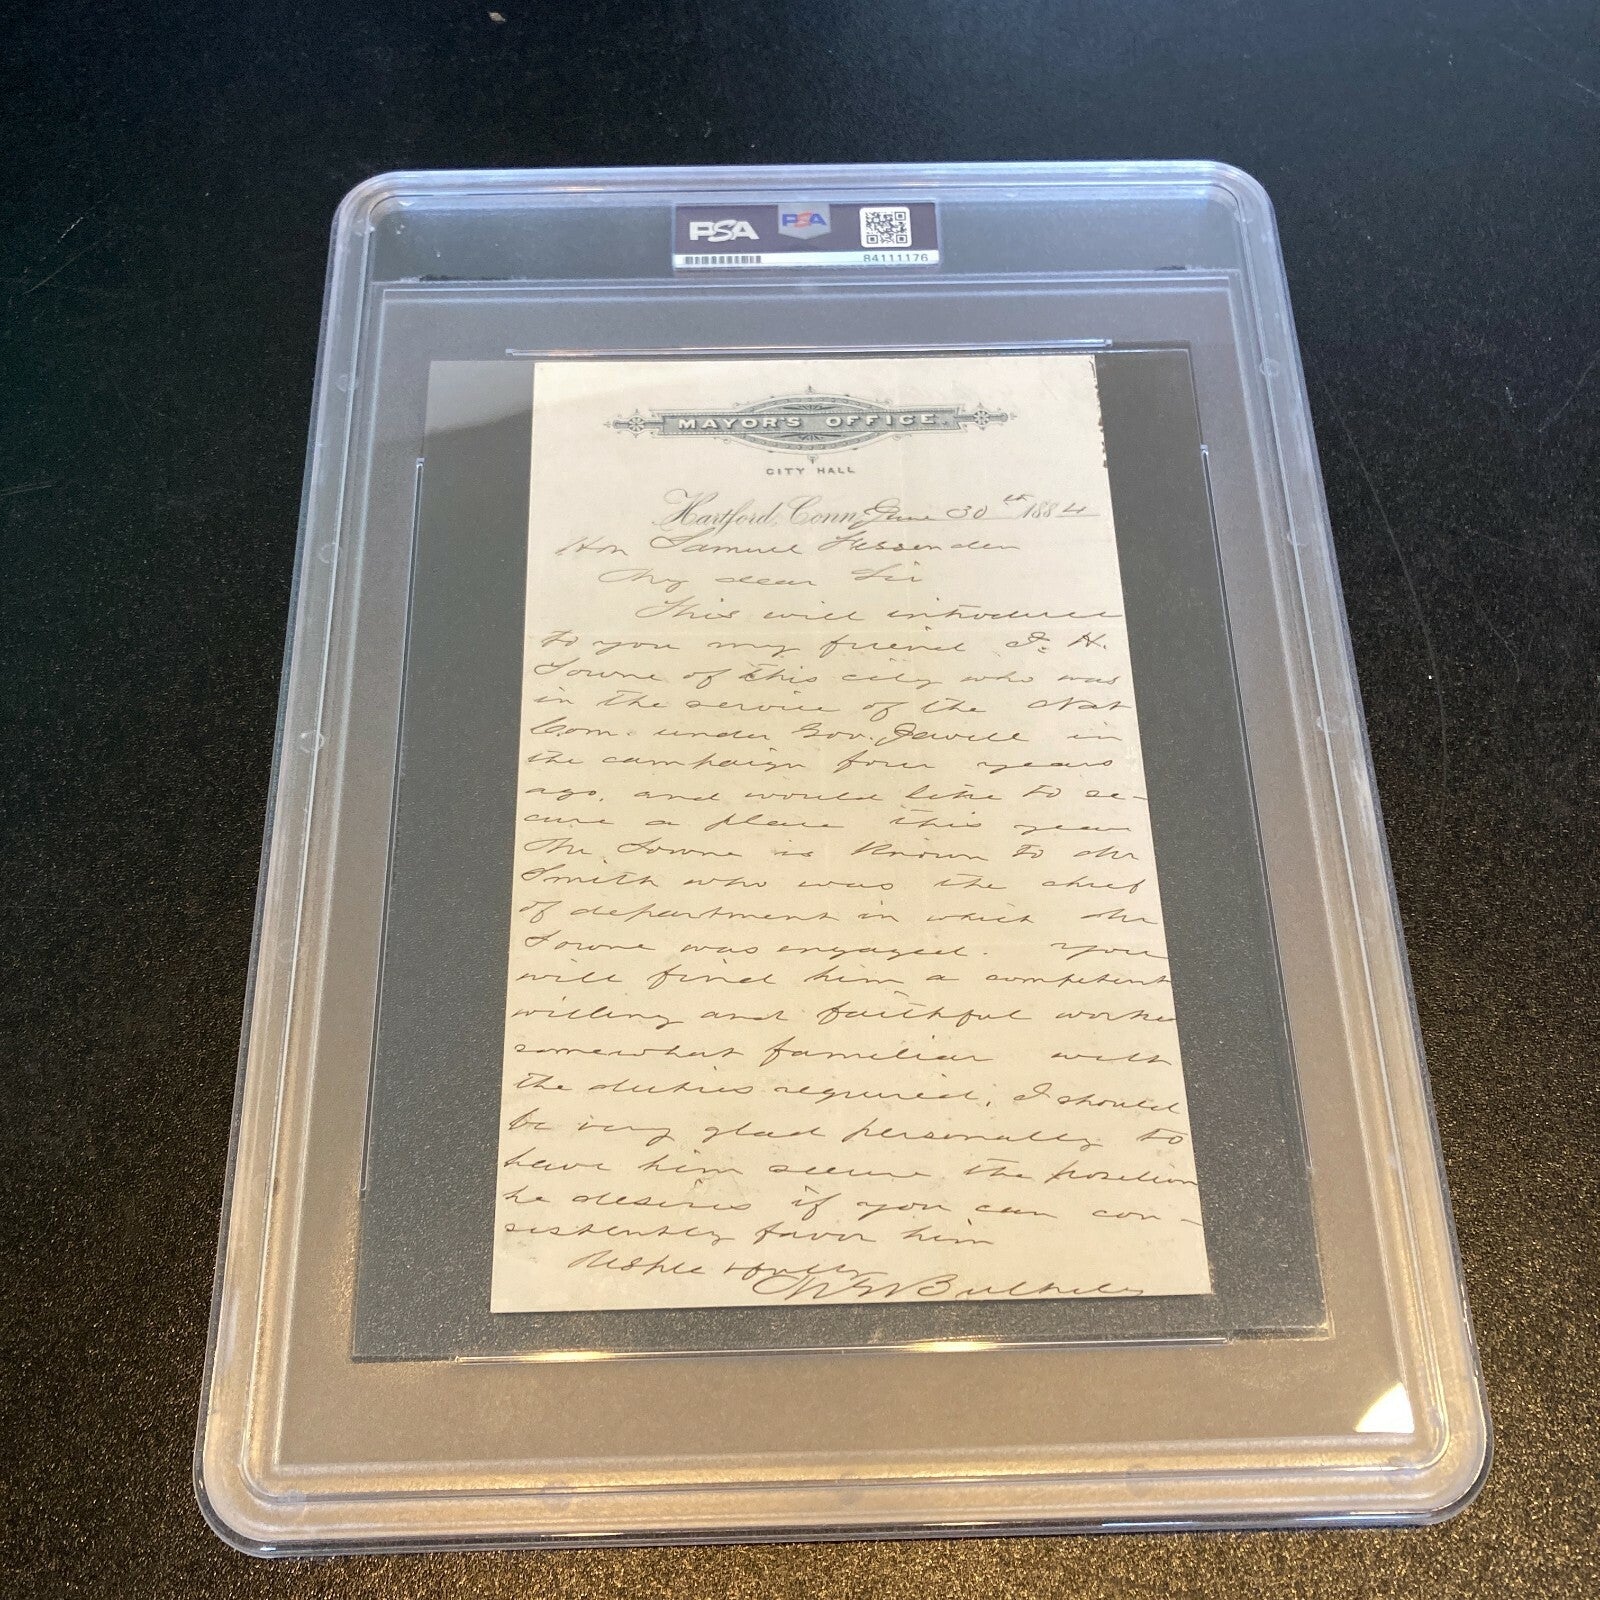 PSA PSA
84111176
MAYOR'S OFFICE.
CITY HALL
Hartford, Conn. June 30th 1884
Hon Samuel Fessenden
My dear Sir
This will introduce
to you my friend J. H.
Towne of this city who was
in the service of the Nat
Com. under Gov. Jewell in
the campaign four years
ago, and would like to se-
cure a place this year
Mr Towne is known to Mr
Smith who was the chief
of department in which Mr
Towne was engaged. You
will find him a competent
willing and faithful worker
somewhat familiar with
the duties required, I should
be very glad personally to
have him secure the position
he desires if you can con-
sistently favor him
Respectfully
M G Bulkeley